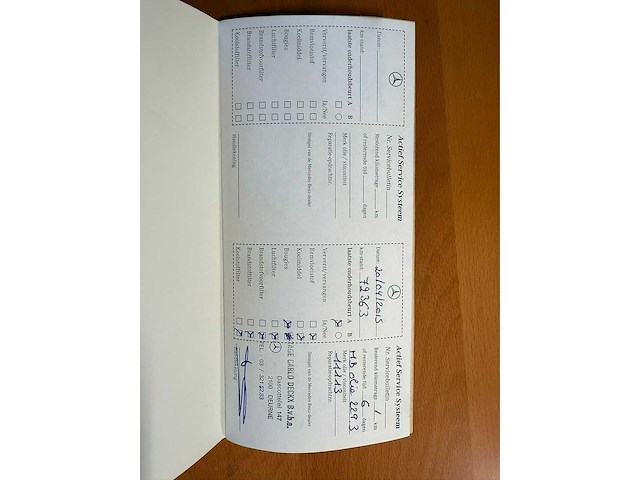 Actief Service Systeem
Nr. Servicebulletin
Resterend kilometrage km
of resterende tijd dagen
Merk olie / viscositeit
Reparatie-opdrachtnr.
Stempel van de Mercedes-Benz-dealer
Handtekening
Datum:
km-stand:
laatste onderhoudsbeurt A B
Ververst/vervangen Ja/Nee
Remvloeistof
Koelmiddel
Bougies
Luchtfilter
Brandstofvoorfilter
Brandstoffilter
Koolstoffilter
Actief Service Systeem
Nr. Servicebulletin
Resterend kilometrage / km
of resterende tijd 6 dagen
MB olie 229.3
Merk olie / viscositeit
11113
Reparatie-opdrachtnr.
Stempel van de Mercedes-Benz-dealer
CARLO DECKX B.v.b.a.
147
2100 DEURNE
TEL. 03 / 321.
Handtekening
Datum: 20/04/2015
km-stand: 72363
laatste onderhoudsbeurt A B
Ververst/vervangen Ja/Nee
Remvloeistof
Koelmiddel
Bougies
Luchtfilter
Brandstofvoorfilter
Brandstoffilter
Koolstoffilter